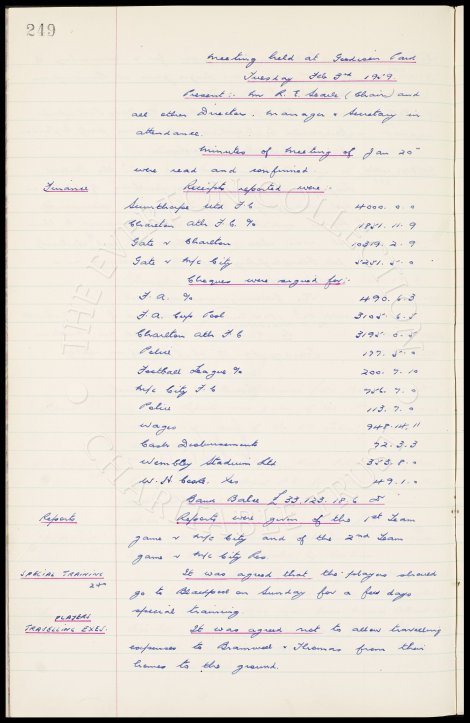 249
Meeting held at Goodison Park
Tuesday Feb 3rd 1959.
Present:- Mr R. E. Searle (Chair) and
all other Director. Manager & Secretary in
attendance.
Minutes of Meeting of Jan 20th
were read and confirmed
Finance Receipts reported were:-
Scunthorpe Utd F.C 4000. 0. 0
Charlton Ath F.C. % 1851. 11. 9
Gate v Charlton 10319. 2. 9
Gate v M/c City 5251. 5. 0
Cheques were signed for:-
F.A. % 490. 6. 3
F.A. Cup Pool 3105. 6. 5
Charlton Ath F.C 3195. 6. 5
Police 177. 5. 0
Football League % 200. 7. 10
M/c City F.C 756. 7. 0
Police 113. 7. 0
Wages 948. 14. 11
Cash Disbursements 72. 3. 3
Wembley Stadium Ltd 353. 8. 0
W. H. Cooke. 49. 1. 0
Bank Balce £33,123. 18. 6
Reports Reports were given of the 1st Team
game v M/c City and of the 2nd Team
game v M/c City Res.
SPECIAL TRAINING It was agreed that the players should
go to Blackpool on Sunday for a few days
special training.
PLAYERS
TRAVELLING EXES. It was agreed not to allow travelling
expenses to Bramwell & Thomas from their
homes to the ground.
THE EVERTON COLLECTION
CHARITABLE TRUST